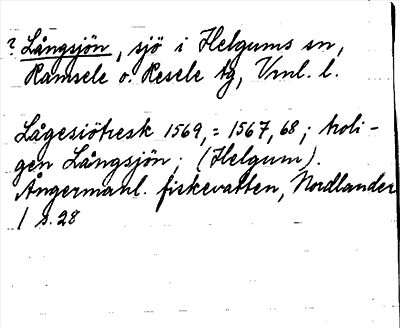 ? Långsjön, sjö i Helgums sn,
Ramsele o. Resele tg, Vrnl. l.
Lågesiötresk 1569, = 1567, 68; troli-
gen Långsjön; (Helgum).
Ångermanl. fiskevatten, Nordlander
1 s. 28